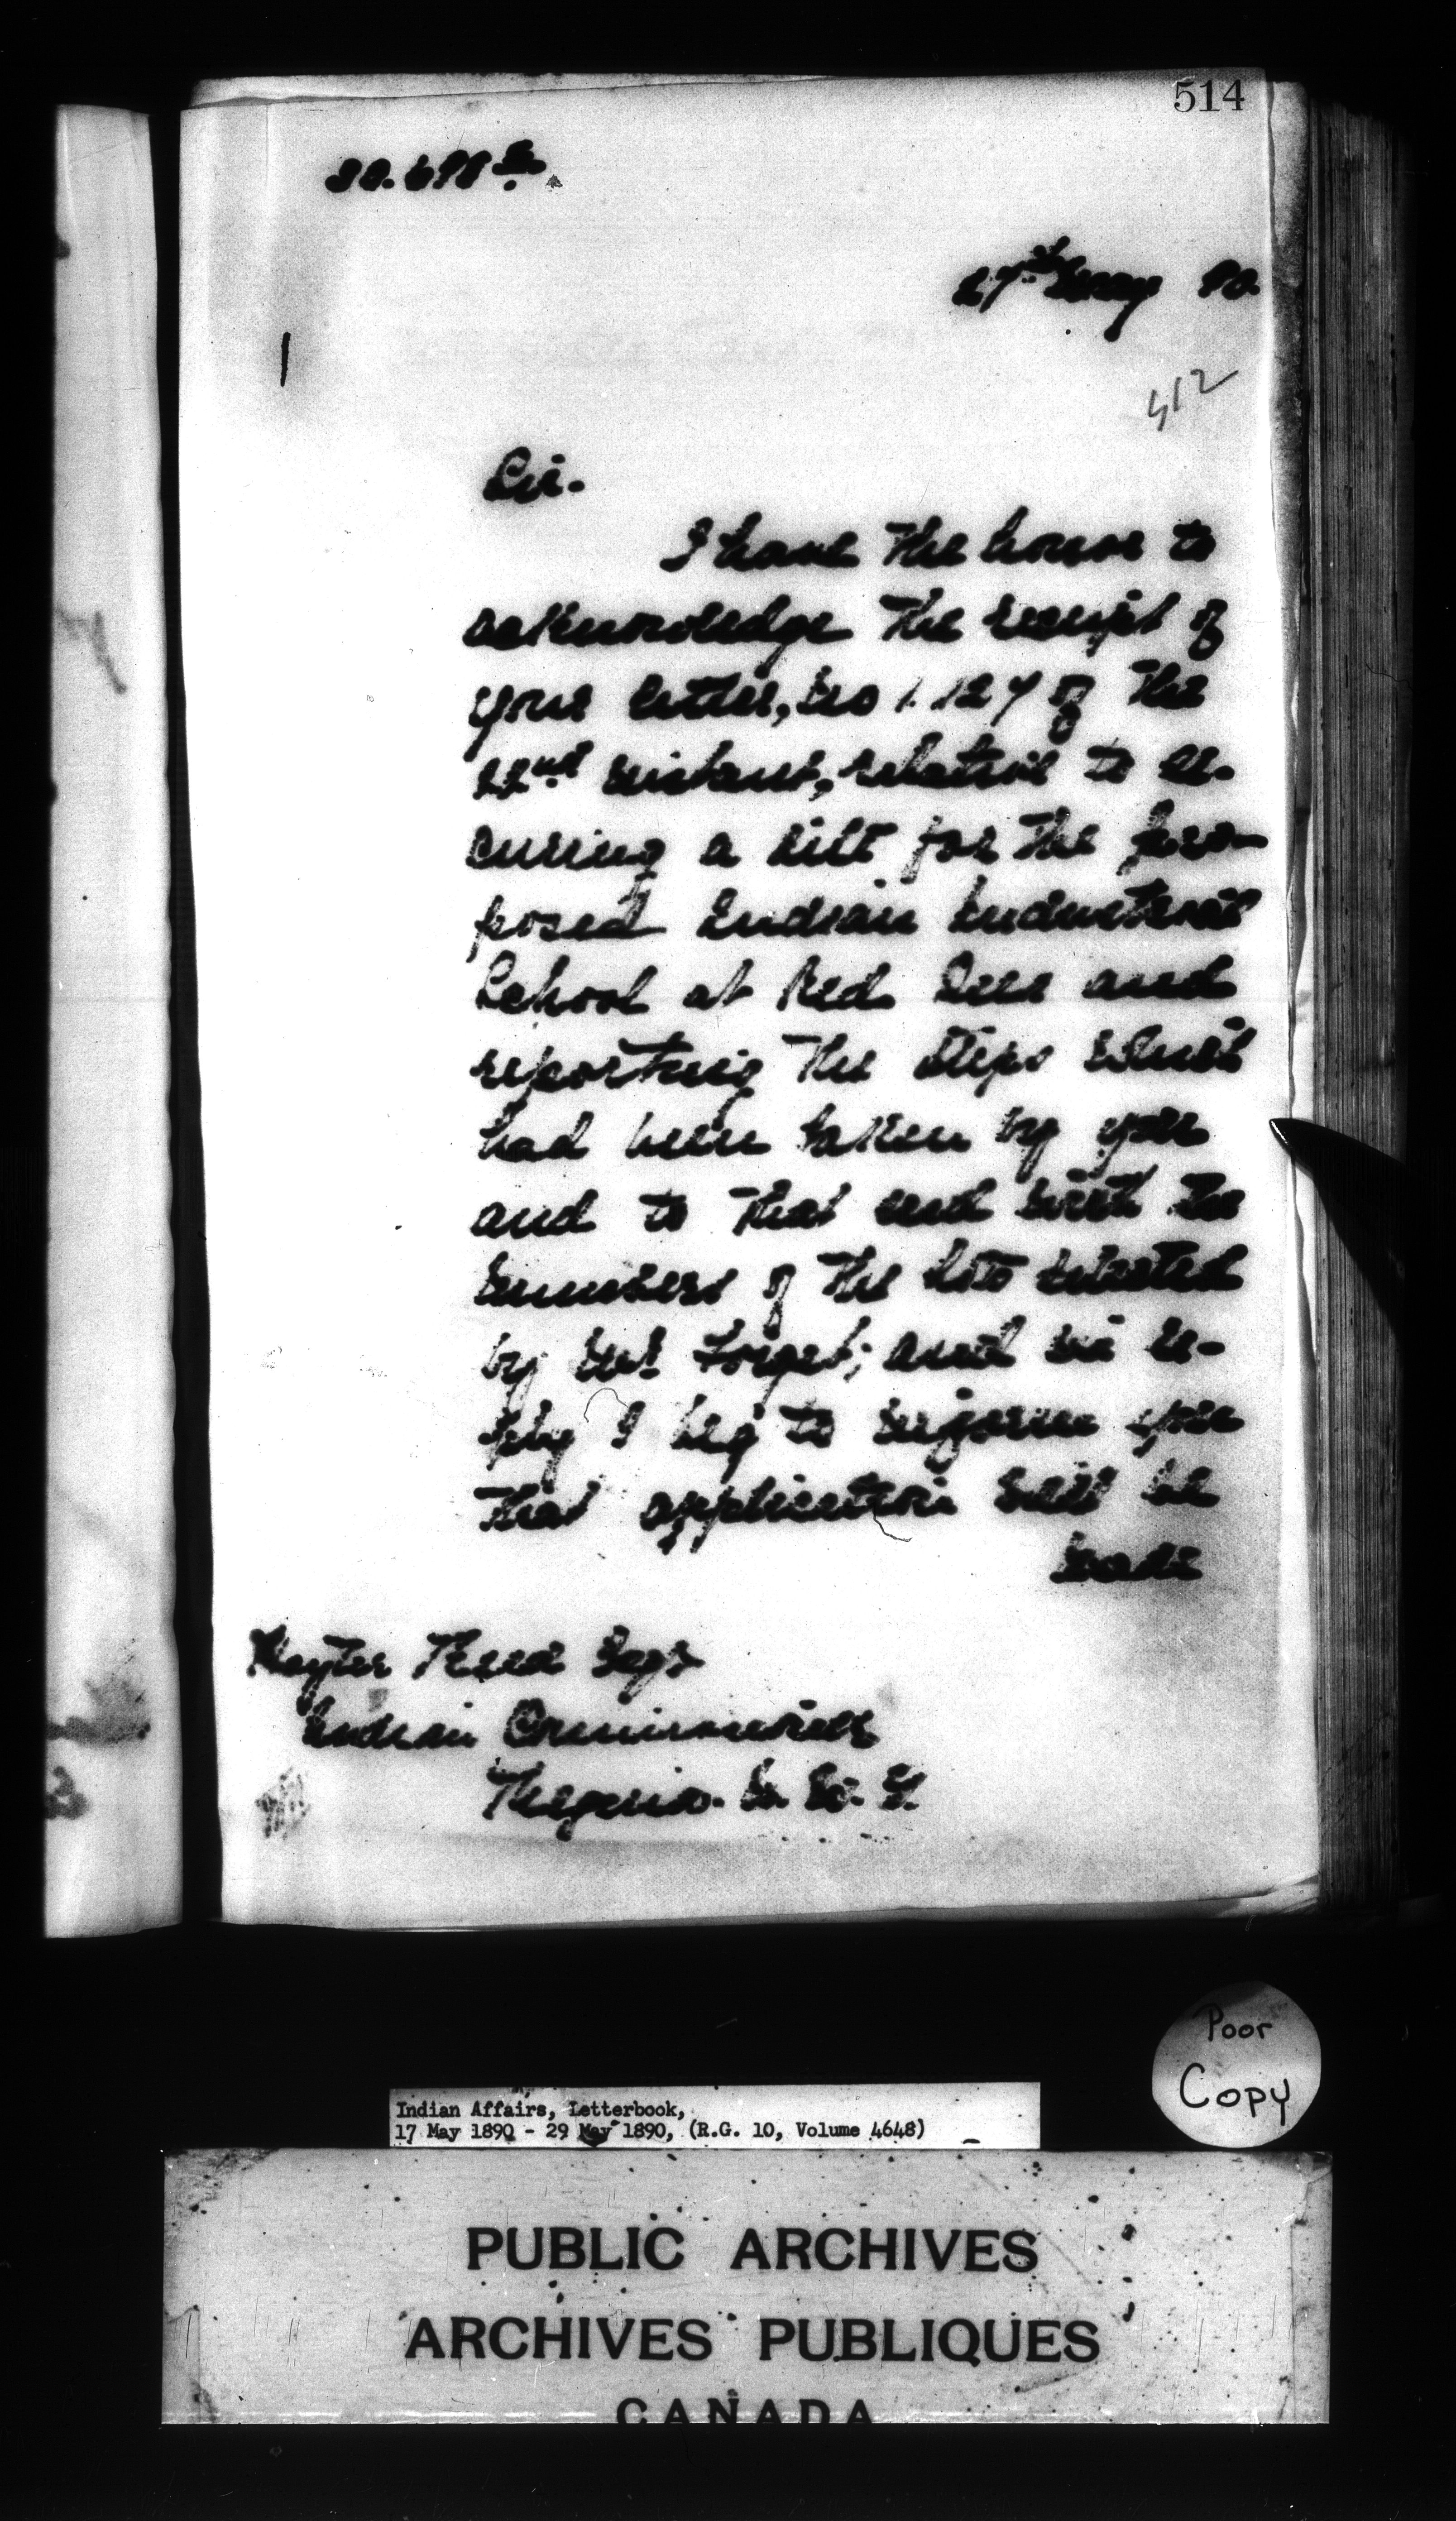 514
27th May 90.
412
Sir.
I have the honor to
acknowledge the receipt of
your letter, No 1127 of the
22nd instant, relative to se-
curing a site for the pro-
posed Indian Industrial
School at Red Deer and
reporting the steps which
had been taken by you
and to that end with the
numbers of the lots selected
by Mr. Forget; and in re-
ply I beg to inform you
that application will be
made
Hayter Reed Esqr
Indian Commissioner
Regina. N. W. T.
Poor
Copy
Indian Affairs, Letterbook,
17 May 1890 - 29 May 1890, (R.G. 10, Volume 4648)
PUBLIC ARCHIVES
ARCHIVES PUBLIQUES
CANADA